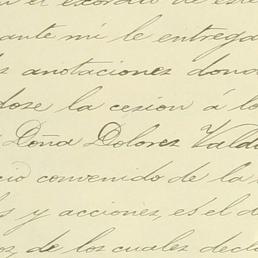 el exordio de este
ante mí le entrega
s anotaciones dond
dose la cesion á lo
Doña Dolores Vald
cio convenido de la
s y acciones, es el d
os, de los cuales decl